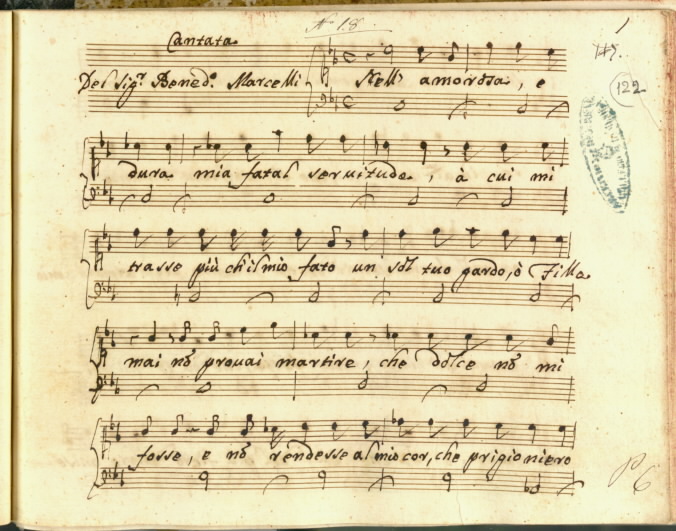 No 18.
Cantata
149.
Del Sigr. Bened.o Marcelli
Nell' amorosa, e
122
dura mia fatal servitude, à cui mi
trasse più ch'il mio fato un sol tuo gardo, ò Filla
mai nõ provai martire, che dolce nõ mi
fosse, e nõ rendesse al mio cor, che prigioniero